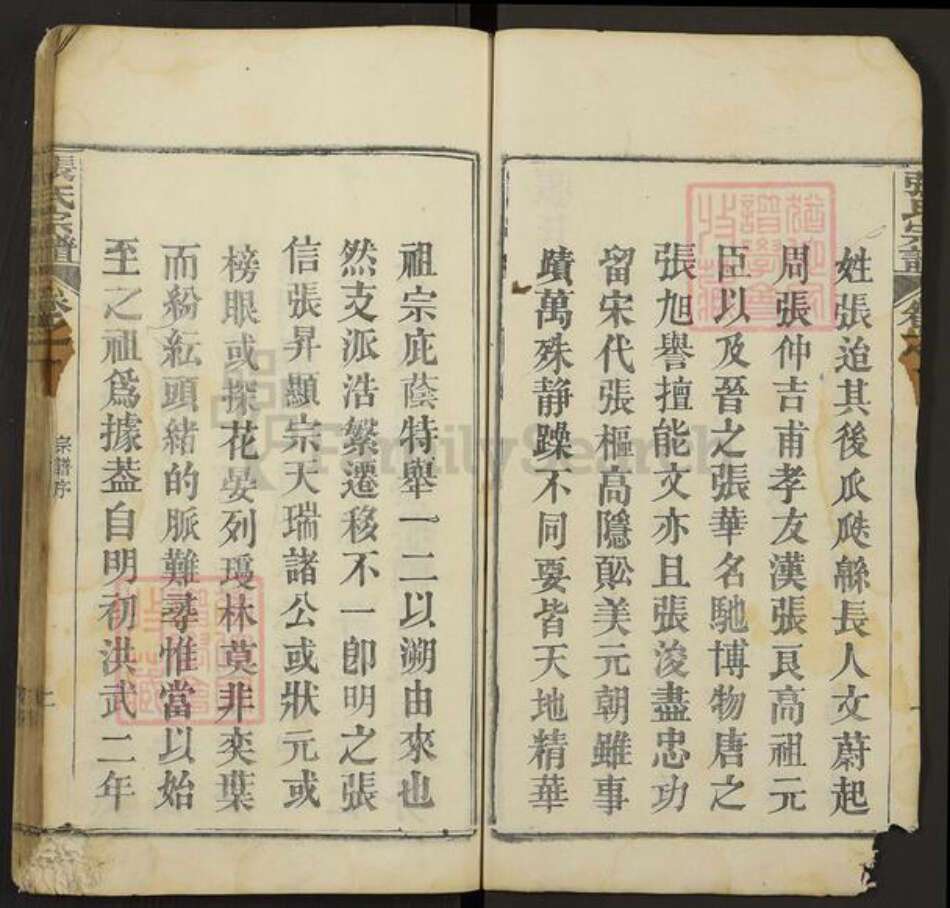 姓張迨其後瓜瓞緜長人文蔚起
周張仲吉甫孝友漢張良高祖元
臣以及晉之張華名馳博物唐之
張旭譽擅能文亦且張浚盡忠功
留宋代張樞高隱訟美元朝雖事
蹟萬殊静躁不同要皆天地精華
祖宗庇蔭特舉一二以溯由來也
然支派浩繁遷移不一卽明之張
信張昇顯宗天瑞諸公或狀元或
榜眼或探花宴列瓊林莫非奕葉
而紛紜頭緒的脈難尋惟當以始
至之祖爲據葢自明初洪武二年
張氏宗譜
宗譜序
FamilySearch